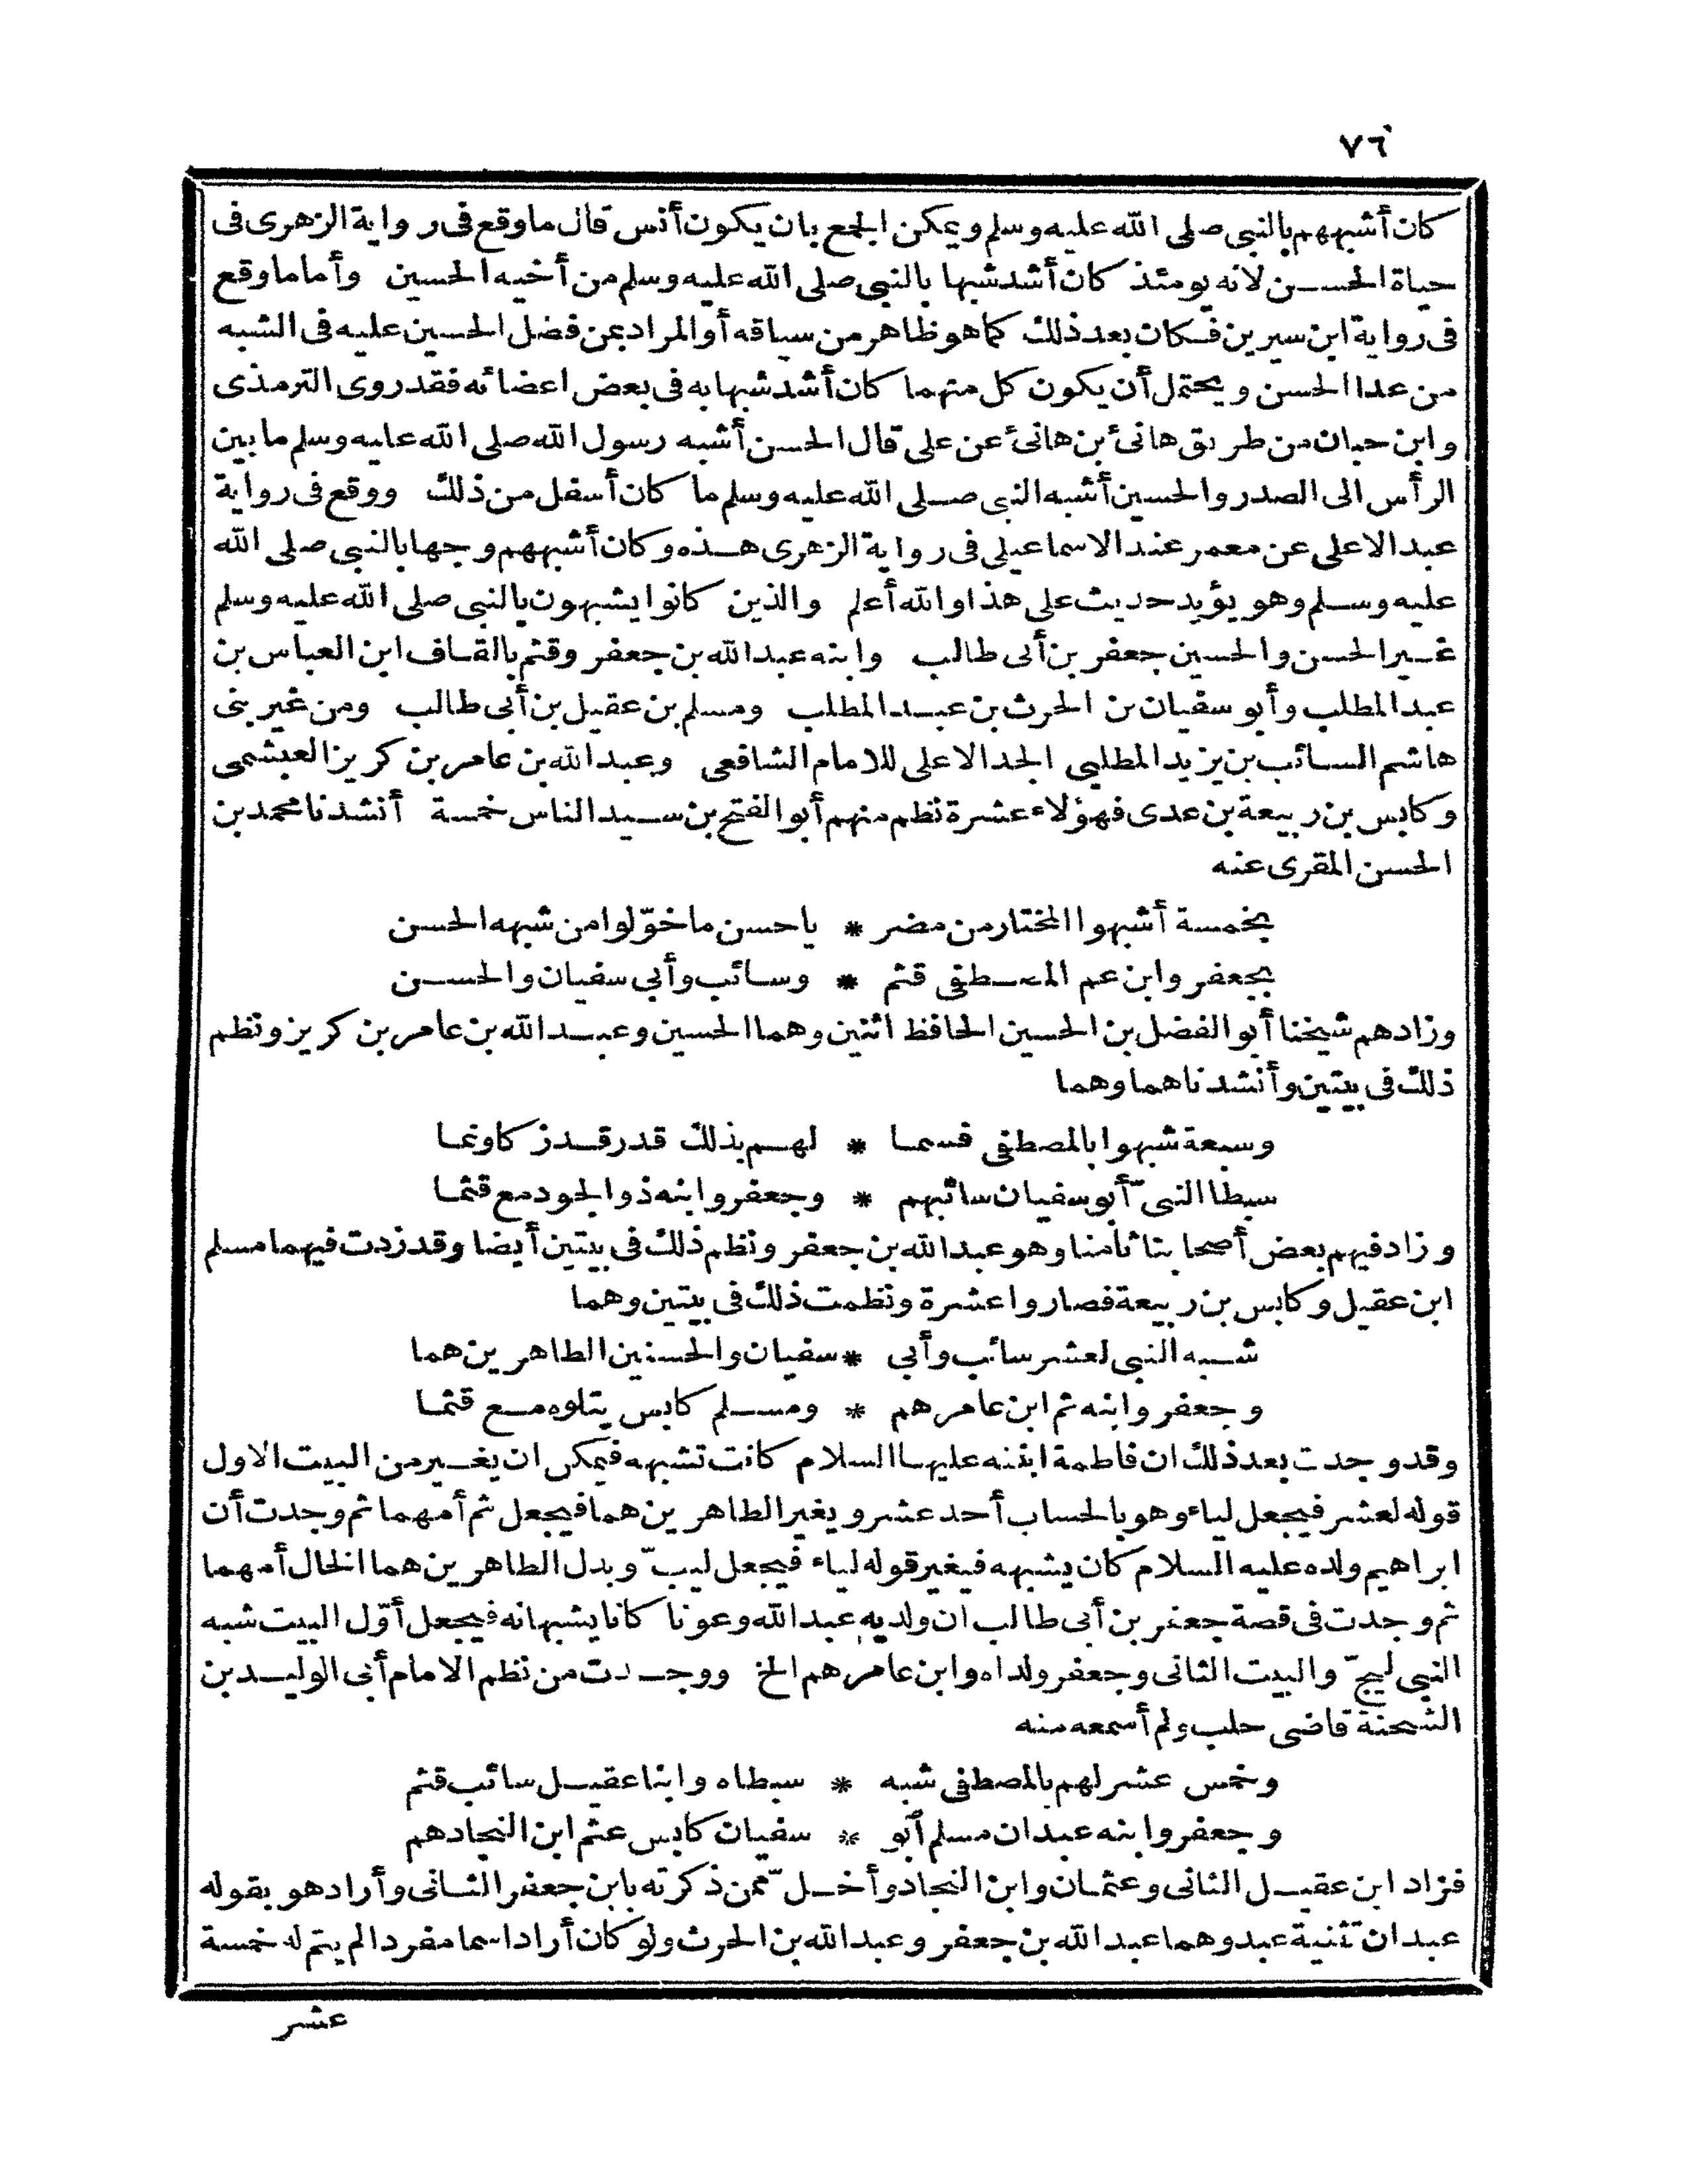 ٧٦
كان أشبههم بالنبي صلى الله عليه وسلم ويمكن الجمع بان يكون أنس قال ما وقع فى رواية الزهرى فى
حياة الحسن لانه يومئذ كان أشد شبها بالنبي صلى الله عليه وسلم من أخيه الحسين وأما ما وقع
فى رواية ابن سيرين فكان بعد ذلك كما هو ظاهر من سياقه أو المراد بمن فضل الحسين عليه فى الشبه
من عدا الحسن ويحتمل أن يكون كل منهما كان أشد شبها به فى بعض اعضائه فقد روى الترمذى
وابن حبان من طريق هانئ بن هانئ عن على قال الحسن أشبه رسول الله صلى الله عليه وسلم ما بين
الرأس الى الصدر والحسين أشبه النبي صلى الله عليه وسلم ما كان أسفل من ذلك ووقع فى رواية
عبد الاعلى عن معمر عند الاسماعيلى فى رواية الزهرى هذه وكان أشبههم وجها بالنبي صلى الله
عليه وسلم وهو يؤيد حديث على هذا والله أعلم والذين كانوا يشبهون بالنبي صلى الله عليه وسلم
غير الحسن والحسين جعفر بن أبى طالب وابنه عبد الله بن جعفر وقثم بالقاف ابن العباس بن
عبد المطلب وأبو سفيان بن الحرث بن عبد المطلب ومسلم بن عقيل بن أبى طالب ومن غير بنى
هاشم السائب بن يزيد المطلبي الجد الاعلى للامام الشافعى وعبد الله بن عامر بن كريز العبشمى
وكابس بن ربيعة بن عدى فهؤلاء عشرة نظم منهم أبو الفتح بن سيد الناس خمسة أنشدنا محمد بن
الحسن المقرى عنه
بخمسة أشبهوا المختار من مضر * يا حسن ما خوّلوا من شبهه الحسن
بجعفر وابن عم المصطفى قثم * وسائب وأبي سفيان والحسن
وزادهم شيخنا أبو الفضل بن الحسين الحافظ اثنين وهما الحسين وعبد الله بن عامر بن كريز ونظم
ذلك فى بيتين وأنشدناهما وهما
وسبعة شبهوا بالمصطفى فسما * لهم بذلك قدر قد زكا ونما
سبطا النبىّ أبو سفيان سائبهم * وجعفر وابنه ذو الجود مع قثما
وزاد فيهم بعض أصحابنا ثامنا وهو عبد الله بن جعفر ونظم ذلك فى بيتين أيضا وقد زدت فيهما مسلم
ابن عقيل وكابس بن ربيعة فصاروا عشرة ونظمت ذلك فى بيتين وهما
شبه النبي لعشر سائب وأبي * سفيان والحسنين الطاهرين هما
وجعفر وابنه ثم ابن عامرهم * ومسلم كابس يتلوه مع قثما
وقد وجدت بعد ذلك ان فاطمة ابنته عليها السلام كانت تشبهه فيمكن ان يغير من البيت الاول
قوله لعشر فيجعل لياء وهو بالحساب أحد عشر ويغير الطاهرين هما فيجعل ثم أمهما ثم وجدت أن
ابراهيم ولده عليه السلام كان يشبهه فيغير قوله لياء فيجعل ليبّ وبدل الطاهرين هما الخال أمهما
ثم وجدت فى قصة جعفر بن أبى طالب ان ولديه عبد الله وعونا كانا يشبهانه فيجعل أوّل البيت شبه
النبي ليجّ والبيت الثانى وجعفر ولداه وابن عامرهم الخ ووجدت من نظم الامام أبى الوليد بن
الشحنة قاضى حلب ولم أسمعه منه
وخمس عشر لهم بالمصطفى شبه * سبطاه وابنا عقيل سائب قثم
وجعفر وابنه عبدان مسلم أبو * سفيان كابس عثم ابن النجاد هم
فزاد ابن عقيل الثانى وعثمان وابن النجاد وأخل ممن ذكرته بابن جعفر الثانى وأراد هو بقوله
عبدان تثنية عبد وهما عبد الله بن جعفر وعبد الله بن الحرث ولو كان أراد اسما مفردا لم يتم له خمسة
عشر